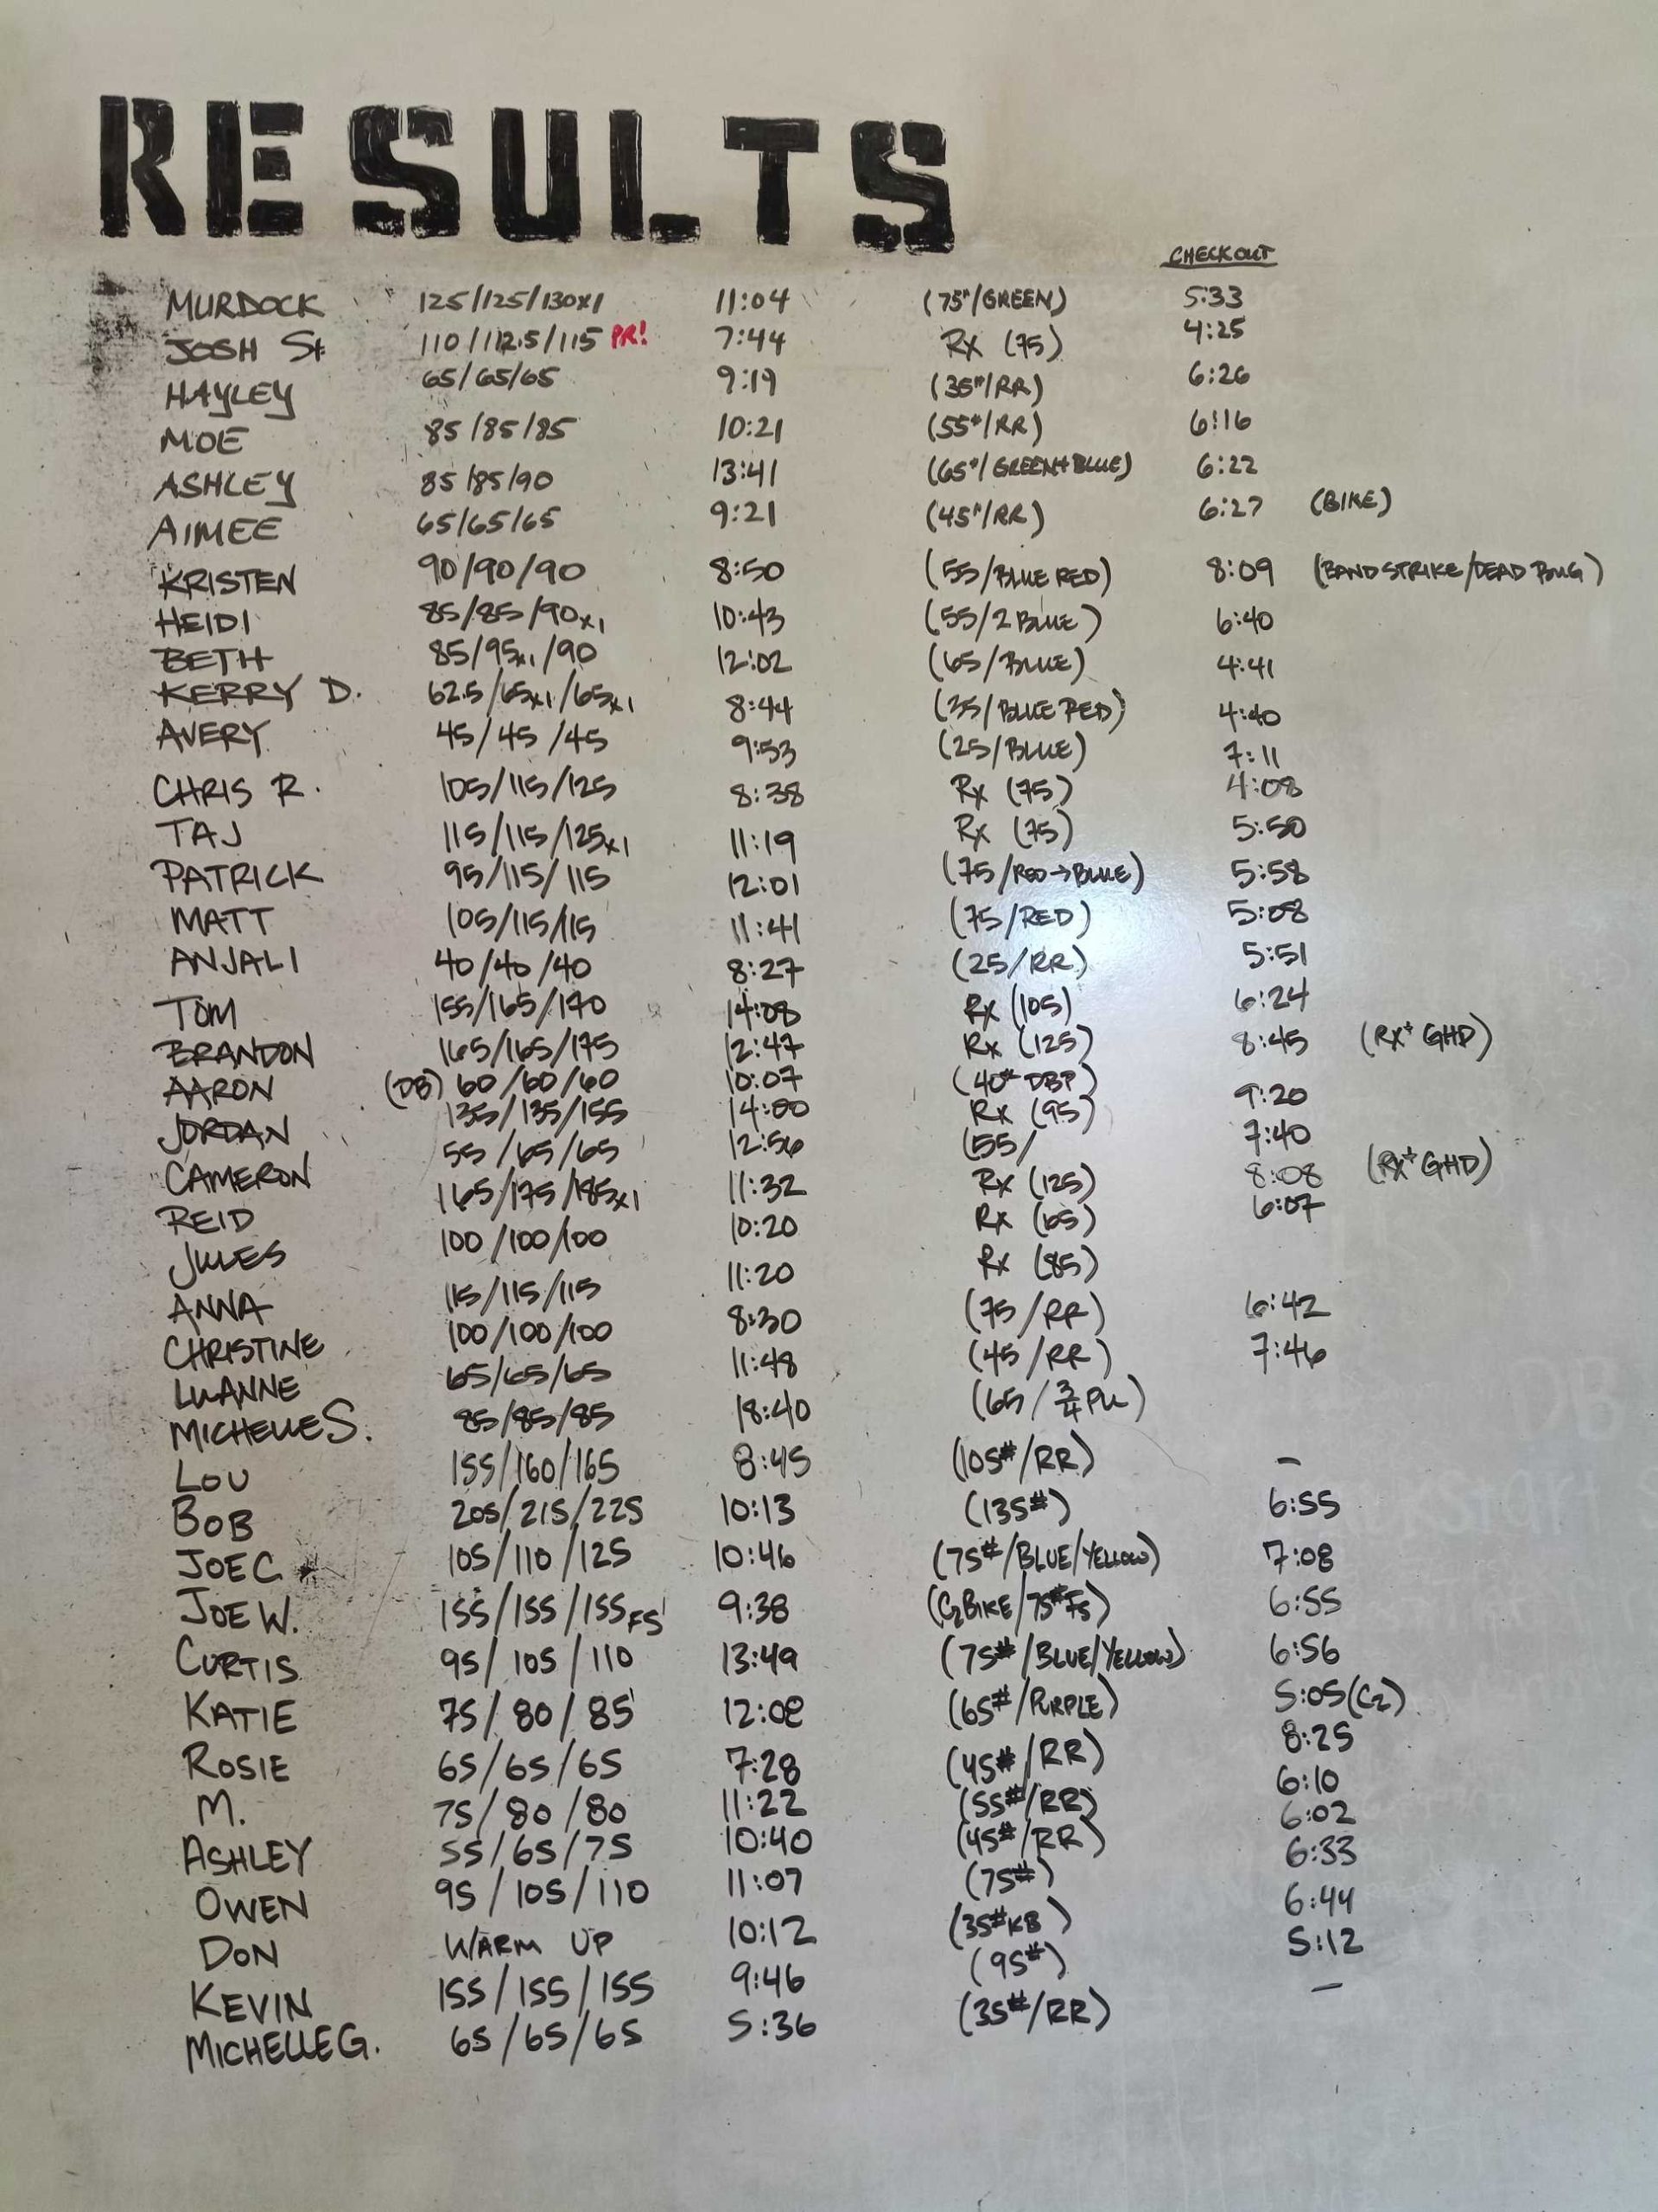 RESULTS
CHECKOUT
MURDOCK 125/125/130x1 11:04 (75#/GREEN) 5:33
JOSH St 110/112.5/115 PR! 7:44 Rx (75) 4:25
HAYLEY 65/65/65 9:19 (35#/RR) 6:26
MOE 85/85/85 10:21 (55#/RR) 6:16
ASHLEY 85/85/90 13:41 (65#/GREEN+BLUE) 6:22
AIMEE 65/65/65 9:21 (45#/RR) 6:27 (BIKE)
KRISTEN 90/90/90 8:50 (55/BLUE RED) 8:09 (BAND STRIKE/DEAD BUG)
HEIDI 85/85/90x1 10:43 (55/2 BLUE) 6:40
BETH 85/95x1/90 12:02 (65/BLUE) 4:41
KERRY D. 62.5/65x1/65x1 8:44 (35/BLUE RED) 4:40
AVERY 45/45/45 9:53 (25/BLUE) 7:11
CHRIS R. 105/115/125 8:38 Rx (75) 4:08
TAJ 115/115/125x1 11:19 Rx (75) 5:50
PATRICK 95/115/115 12:01 (75/RED→BLUE) 5:58
MATT 105/115/115 11:41 (75/RED) 5:08
ANJALI 40/40/40 8:27 (25/RR) 5:51
TOM 155/165/170 14:08 Rx (105) 6:24
BRANDON 165/165/175 12:47 Rx (125) 8:45 (Rx+ GHD)
AARON (DB) 60/60/60 10:07 (40# DBP)
JORDAN 135/135/155 14:00 Rx (95) 9:20
CAMERON 55/65/65 12:56 (55/ 7:40
REID 165/175/185x1 11:32 Rx (125) 8:08 (Rx+ GHD)
JULES 100/100/100 10:20 Rx (65) 6:07
ANNA 115/115/115 11:20 Rx (85)
CHRISTINE 100/100/100 8:30 (75/RR) 6:42
LUANNE 65/65/65 11:48 (45/RR) 7:46
MICHELLE S. 85/85/85 18:40 (65/¾ PU)
LOU 155/160/165 8:45 (105#/RR) –
BOB 205/215/225 10:13 (135#) 6:55
JOE C 105/110/125 10:46 (75#/BLUE/YELLOW) 7:08
JOE W. 155/155/155FS 9:38 (C2BIKE/75#FS) 6:55
CURTIS 95/105/110 13:49 (75#/BLUE/YELLOW) 6:56
KATIE 75/80/85 12:08 (65#/PURPLE) 5:05(C2)
ROSIE 65/65/65 7:28 (45#/RR) 8:25
M. 75/80/80 11:22 (55#/RR) 6:10
ASHLEY 55/65/75 10:40 (45#/RR) 6:02
OWEN 95/105/110 11:07 (75#) 6:33
DON WARM UP 10:12 (35#KB) 6:44
KEVIN 155/155/155 9:46 (95#) 5:12
MICHELLE G. 65/65/65 5:36 (35#/RR) –